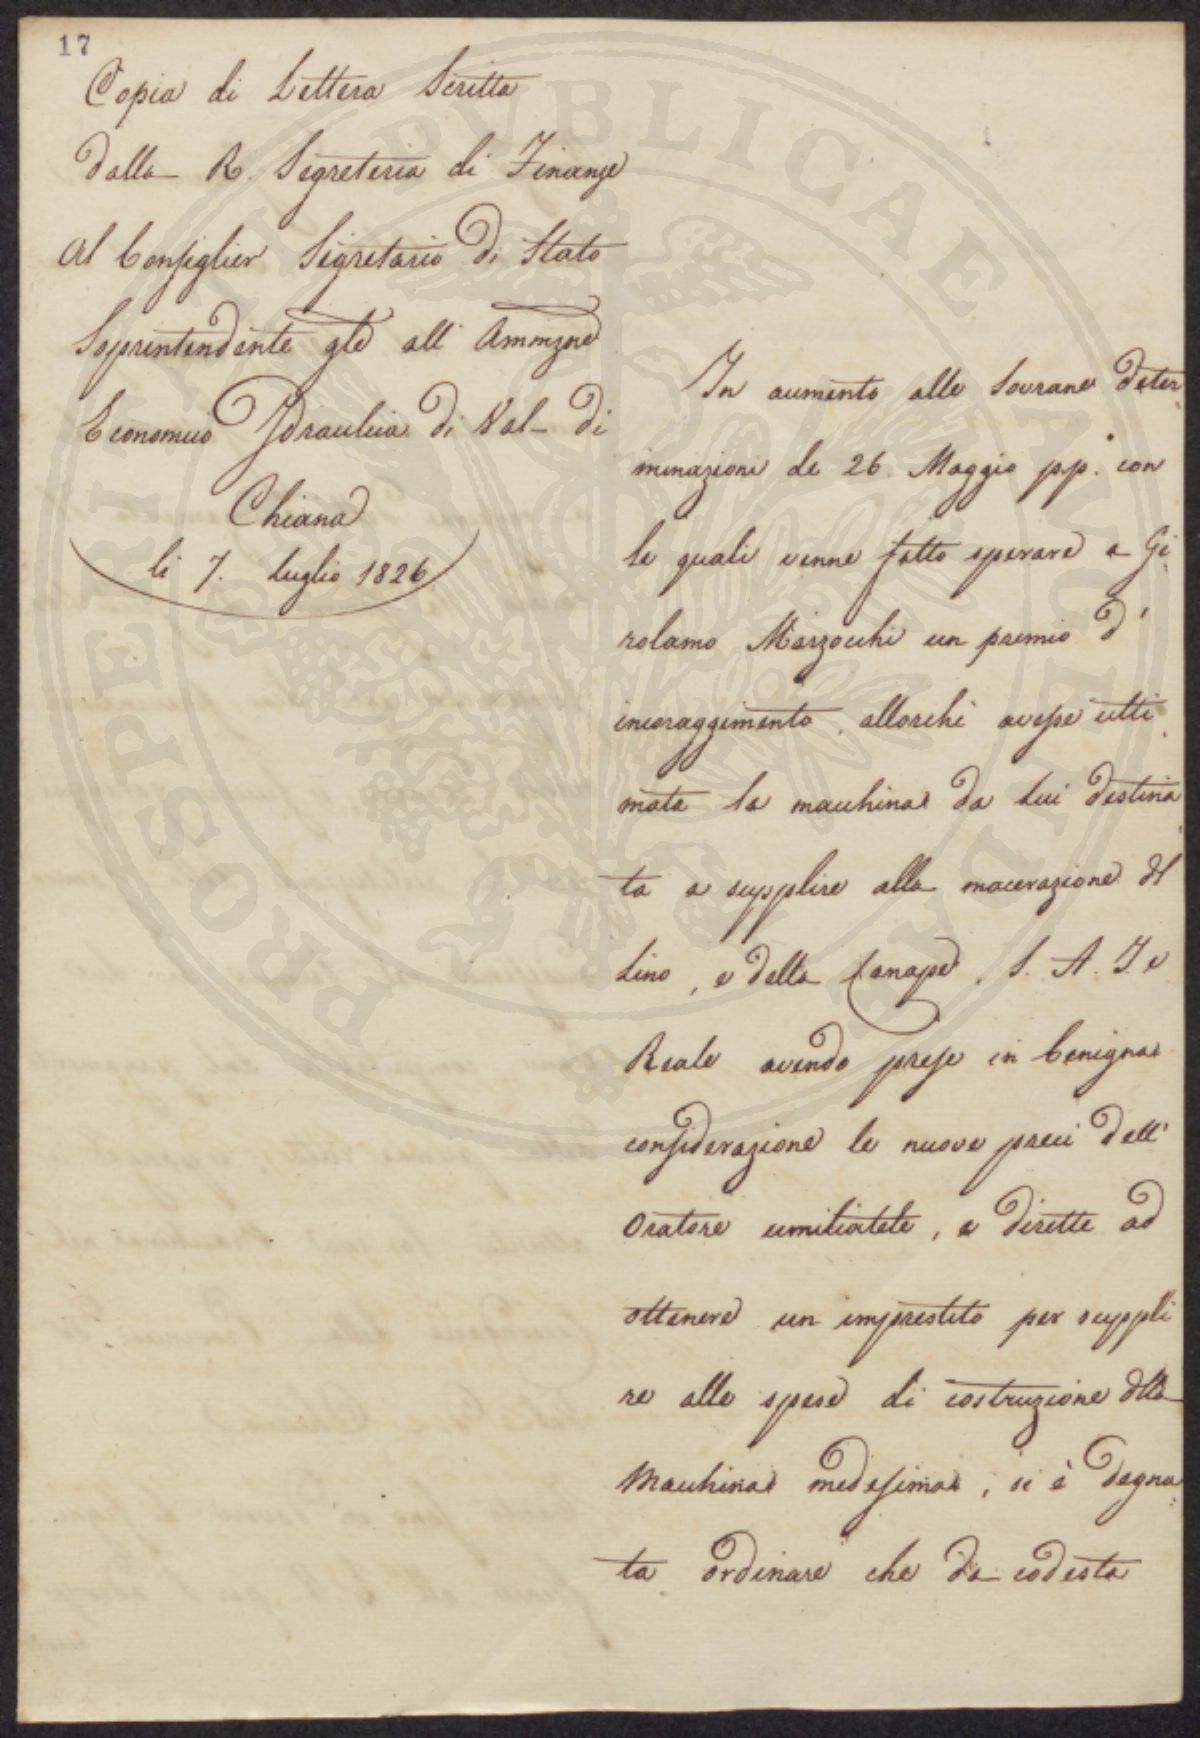 17
Copia di Lettera Scritta
dalla R. Segreteria di Finanze
Al Consiglier Segretario di Stato
Soprintendente gle all' Ammzne
Economico Idraulica di Val di
Chiana
li 7. Luglio 1826
In aumento alle Sovrane deter
minazioni de 26. Maggio p.p. con
le quali venne fatto sperare a Gi
rolamo Marzocchi un premio d'
incoraggimento, allorchè avesse ulti
mata la macchina da lui destina
ta a supplire alla macerazione del
Lino, e della Canape, S. A. I. e
Reale avendo prese in benigna
considerazione le nuove preci dell'
Oratore umiliatele, e dirette ad
ottenere un imprestito per suppli
re alle spese di costruzione dlla
Macchina medesima, si è degna
ta ordinare che da codesta
PROSPERITATI PUBLICAE AUGENDAE